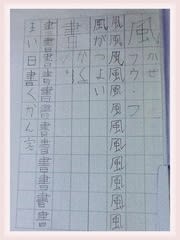 風
かぜ
フウ・フ
風風風風風風風風風風風
風がつよい
書
かく
書書書書書書書書書書書
まい日書くかん字